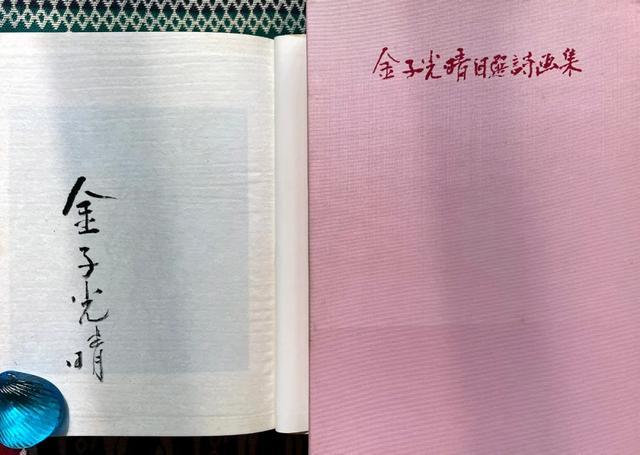 金子光晴
金子光晴自選詩画集